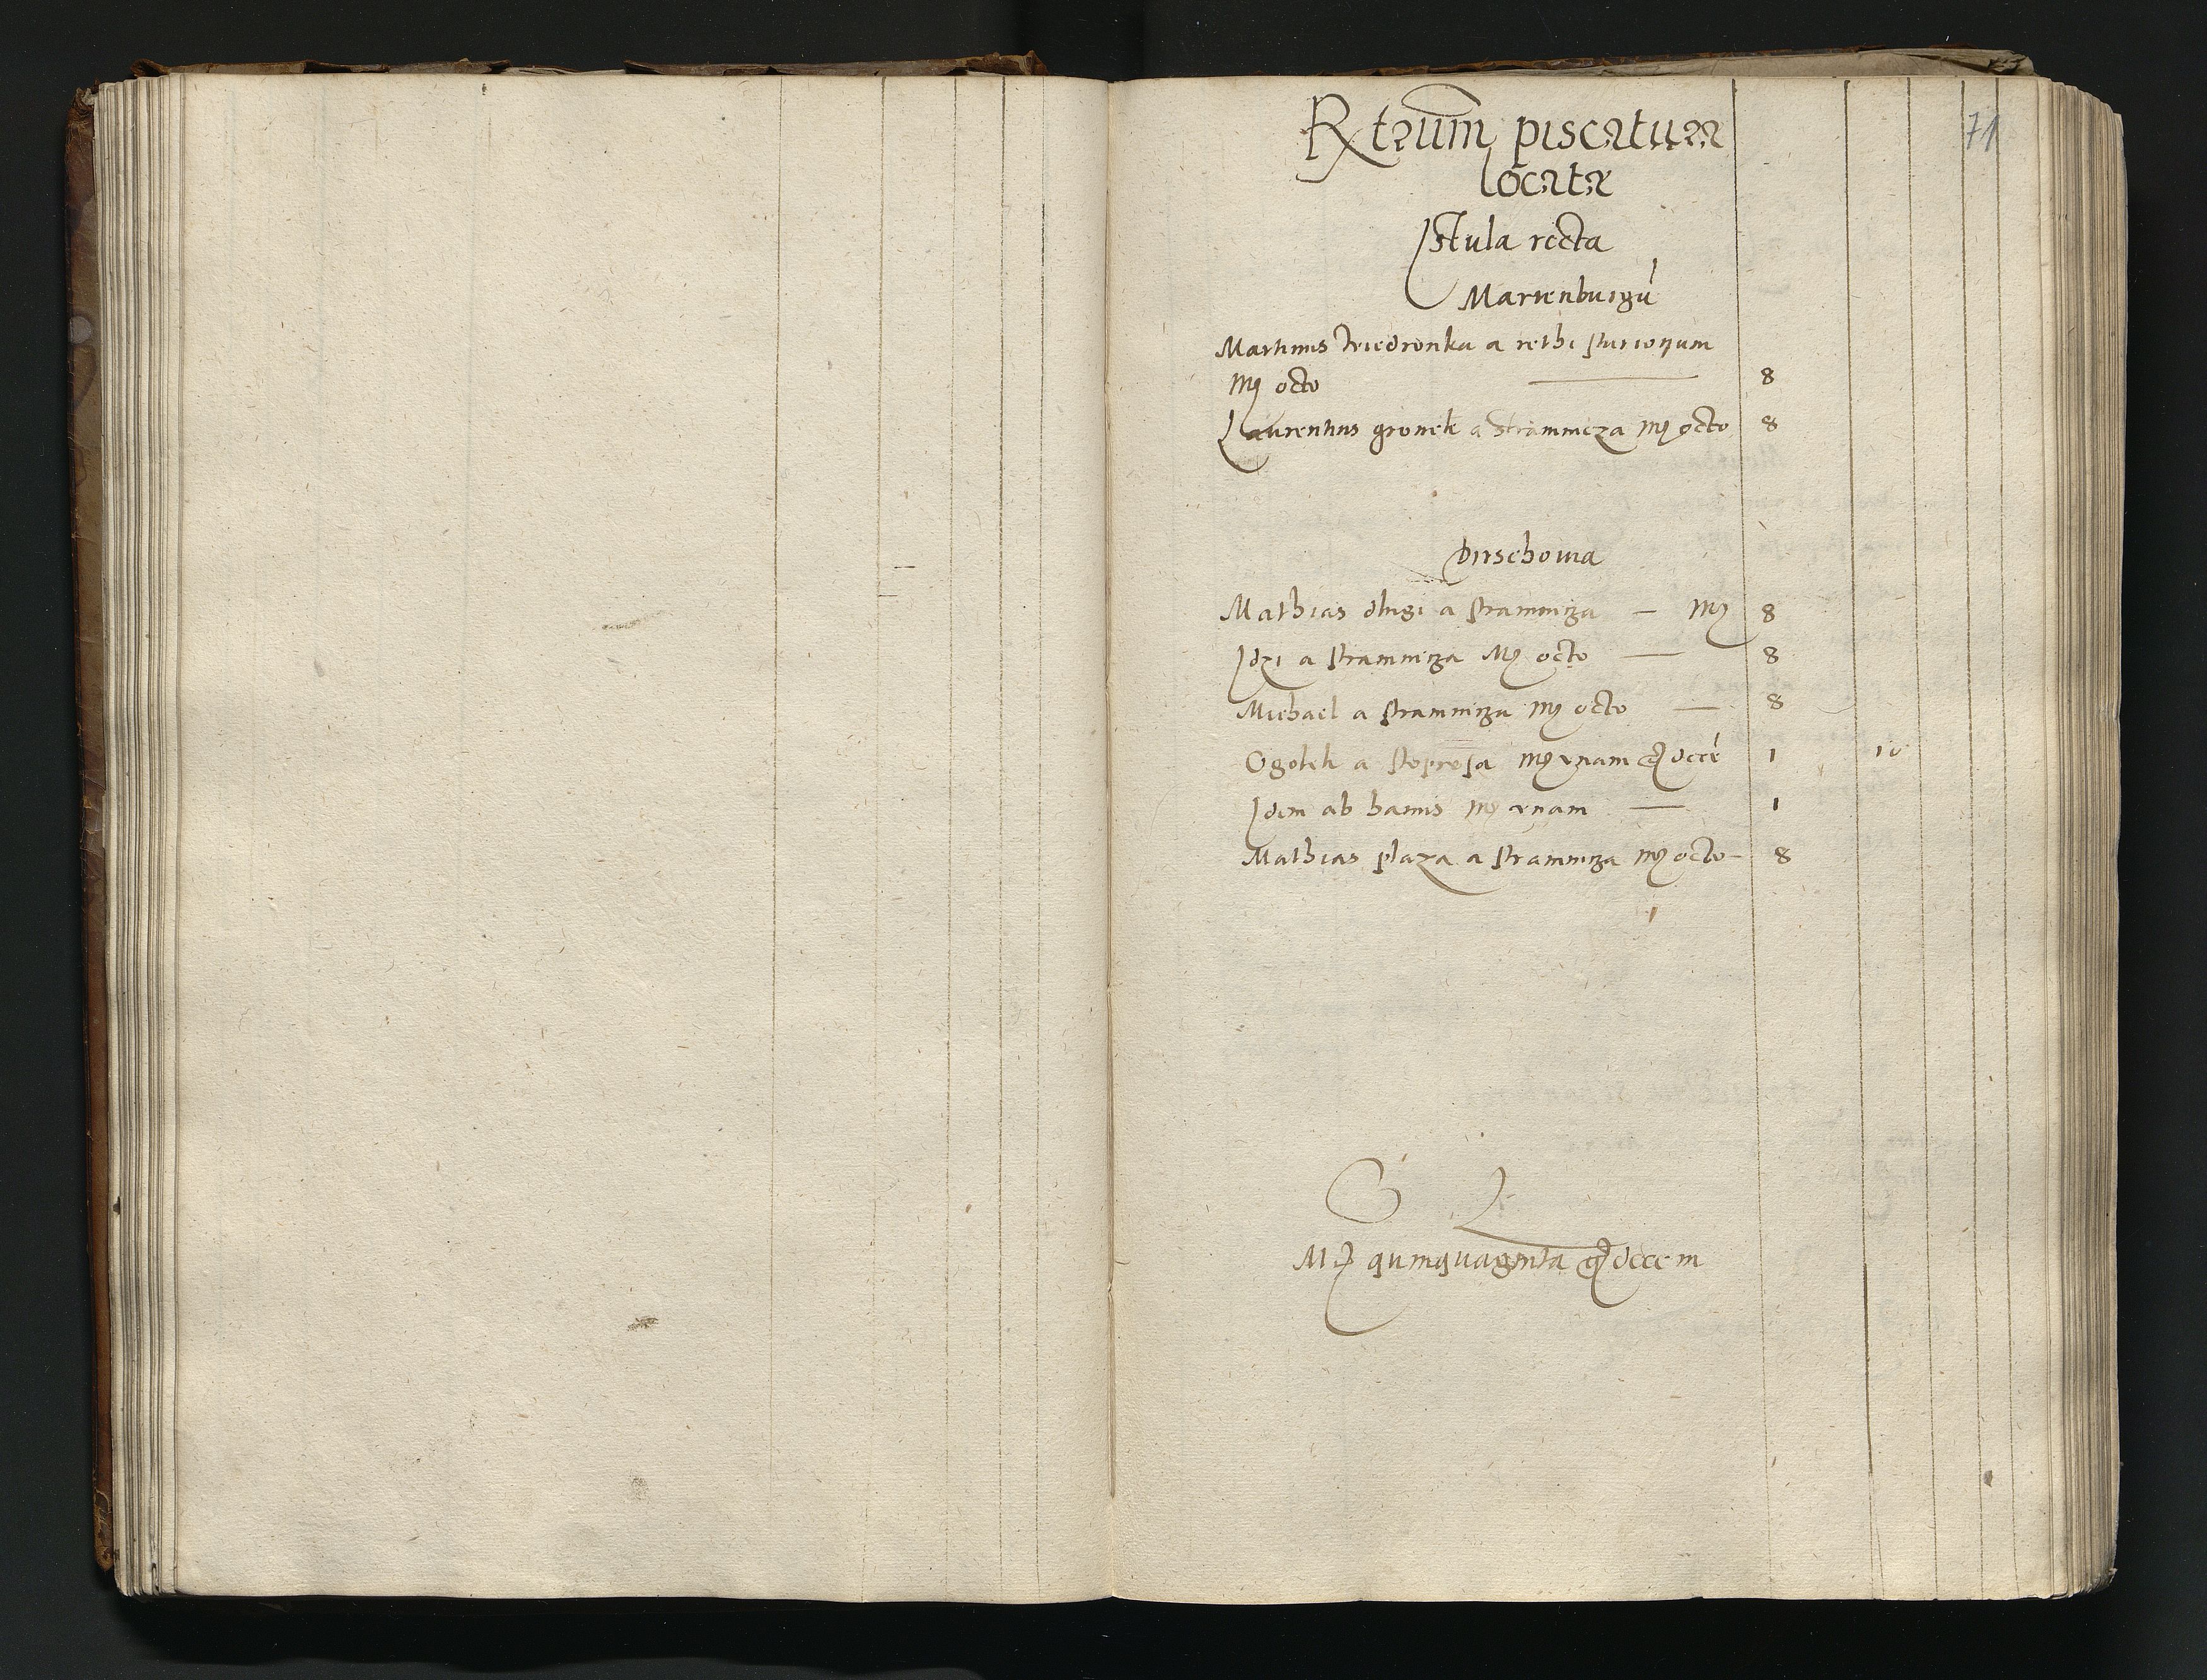 71
Rx tzium piscatura
locata
Istula recta
Marienburgu
Martinus Driedronka a rethi sturionum
Mr octo 8
Laurentius gronek a Stramnicza Mr octo 8
Dirschouia
Mathias dlugi a stramnicza — Mr 8
Idzi a stramnicza Mr octo — 8
Michael a stramnicza Mr octo — 8
Ogotek a stopresa Mr vnam gr dece 1 10
Idem ab hamis Mr vnam — 1
Mathias plaza a stramnicza Mr octo — 8
Mr quinquaginta gr decem